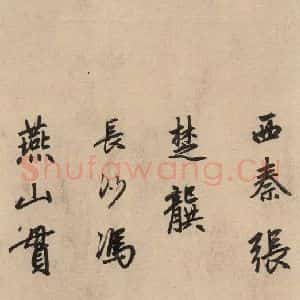 西秦張
楚龔
長沙馮
燕山貫
Shufawang.cn